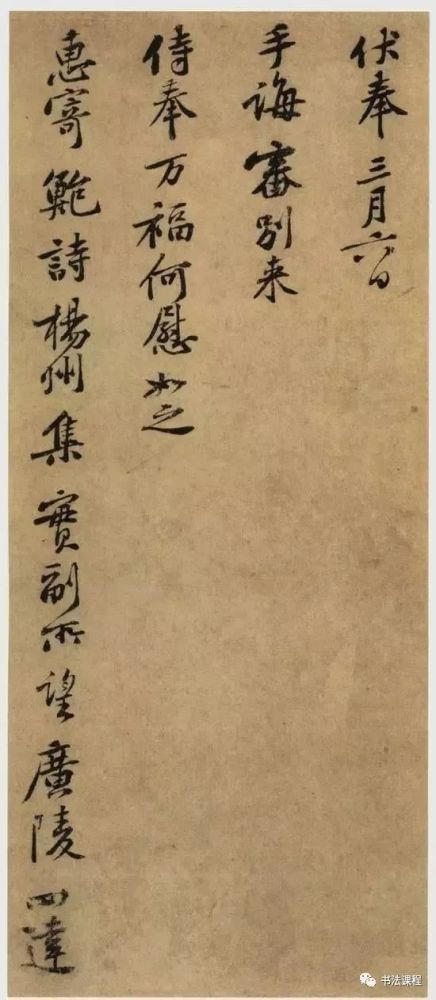 伏奉三月六日
手誨審別来
侍奉万福何慰如之
惠寄鮑詩楊州集實副所望廣陵四達
书法课程